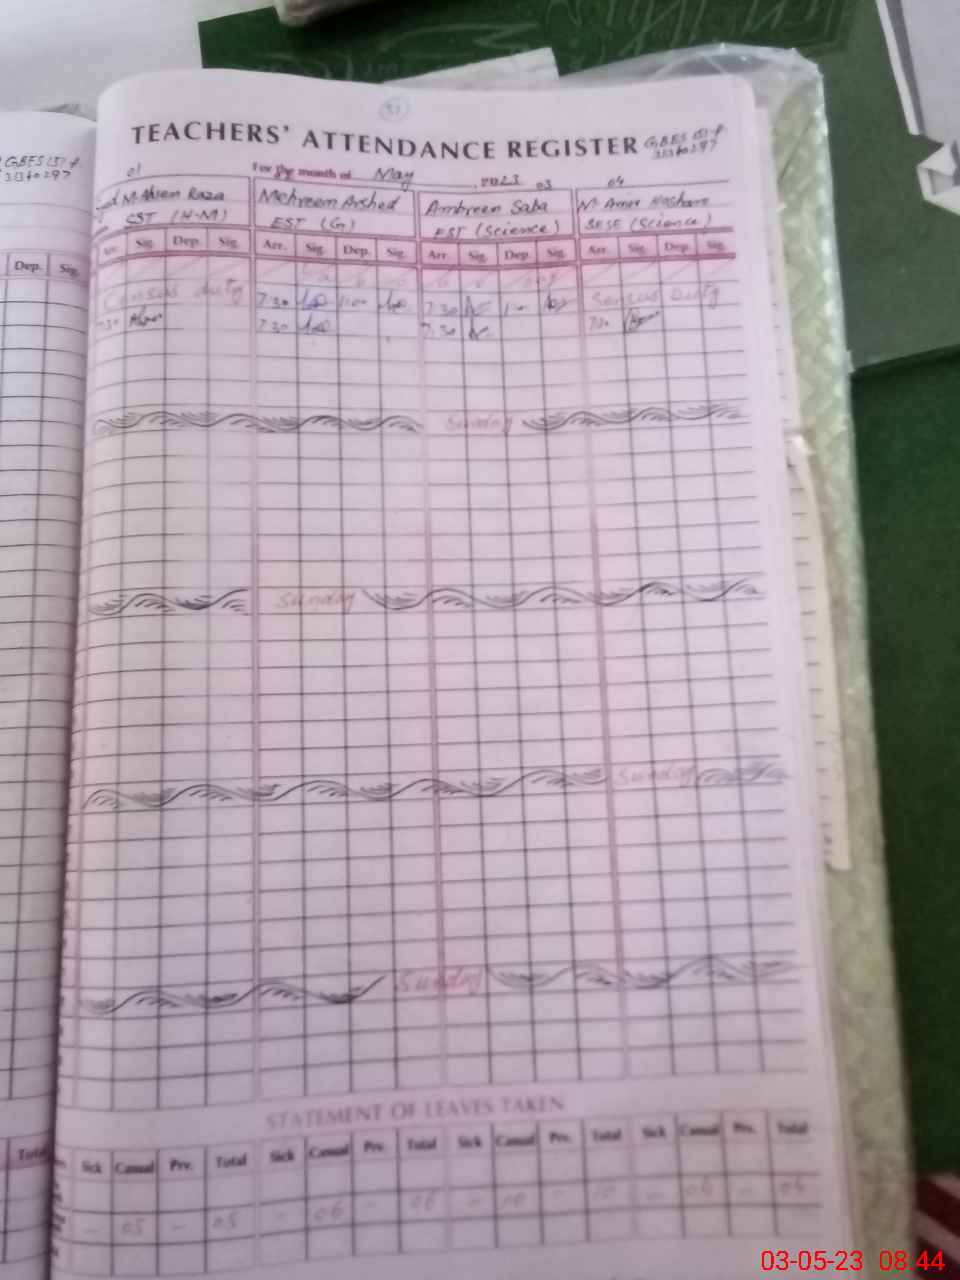 51
TEACHERS' ATTENDANCE REGISTER
GBES 151-P
31340297
GBES 151-P
31340297
For the month of May, 2023
01 03 04
M. Ahsan Raza Mehreem Arshed Ambreen Saba M. Amir
SST (H-M) EST (G) EST (Science) SESE (Science)
Dep. Sig. Arr. Sig. Dep. Sig. Arr. Sig. Dep. Sig. Arr. Sig. Dep. Sig. Arr. Sig. Dep. Sig.
Census duty 7:30 1:00 7:30 Census Duty
7:30 7:30 7:30
Sunday
Sunday
Sunday
Sunday
STATEMENT OF LEAVES TAKEN
Total Sick Casual Prv. Total Sick Casual Prv. Total Sick Casual Prv. Total Sick Casual Prv. Total
- 05 - 05 - 06 - 06 - 10 - 10 - 04 - 04
03-05-23 08:44